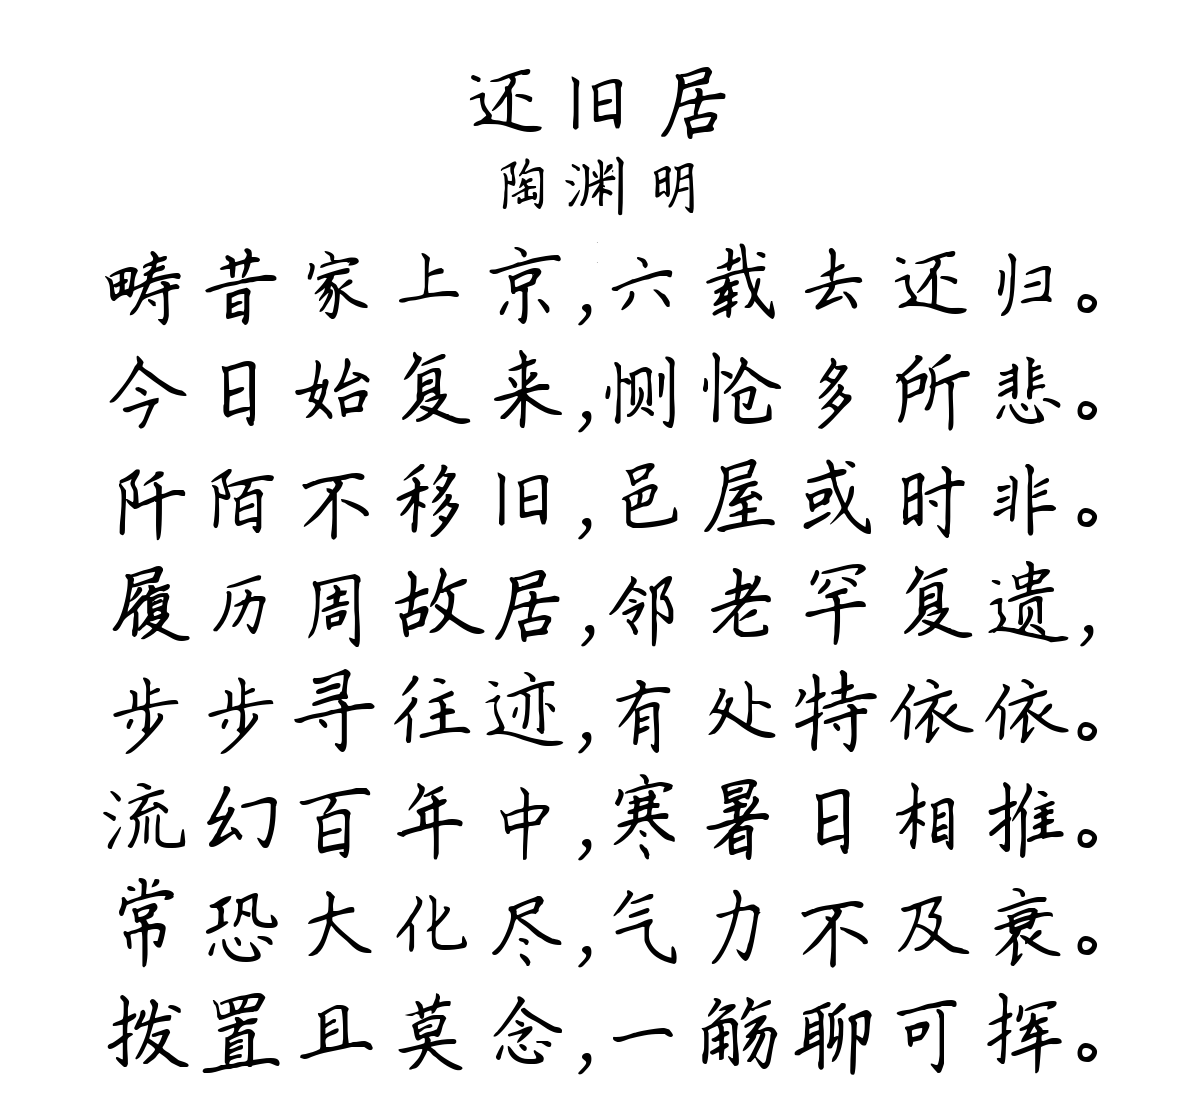 还旧居
陶渊明
畴昔家上京,六载去还归。
今日始复来,恻怆多所悲。
阡陌不移旧,邑屋或时非。
履历周故居,邻老罕复遗,
步步寻往迹,有处特依依。
流幻百年中,寒暑日相推。
常恐大化尽,气力不及衰。
拨置且莫念,一觞聊可挥。